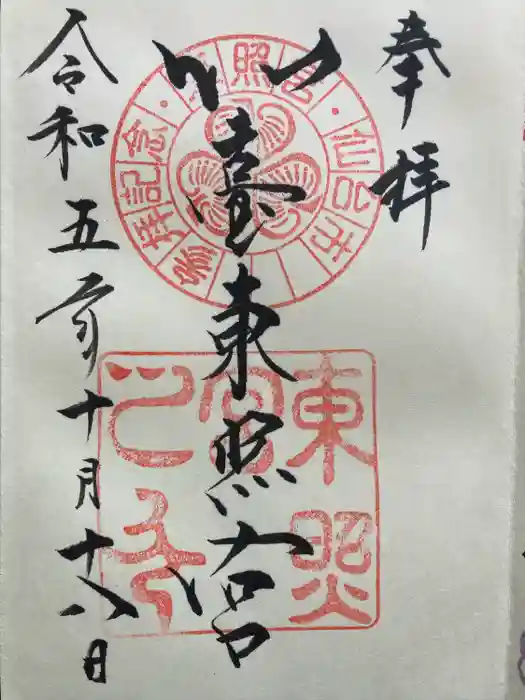 奉拝
仙臺東照宮
令和五年十月十八日
東照宮・仙台市
參拝記念・
東照
宮
之印